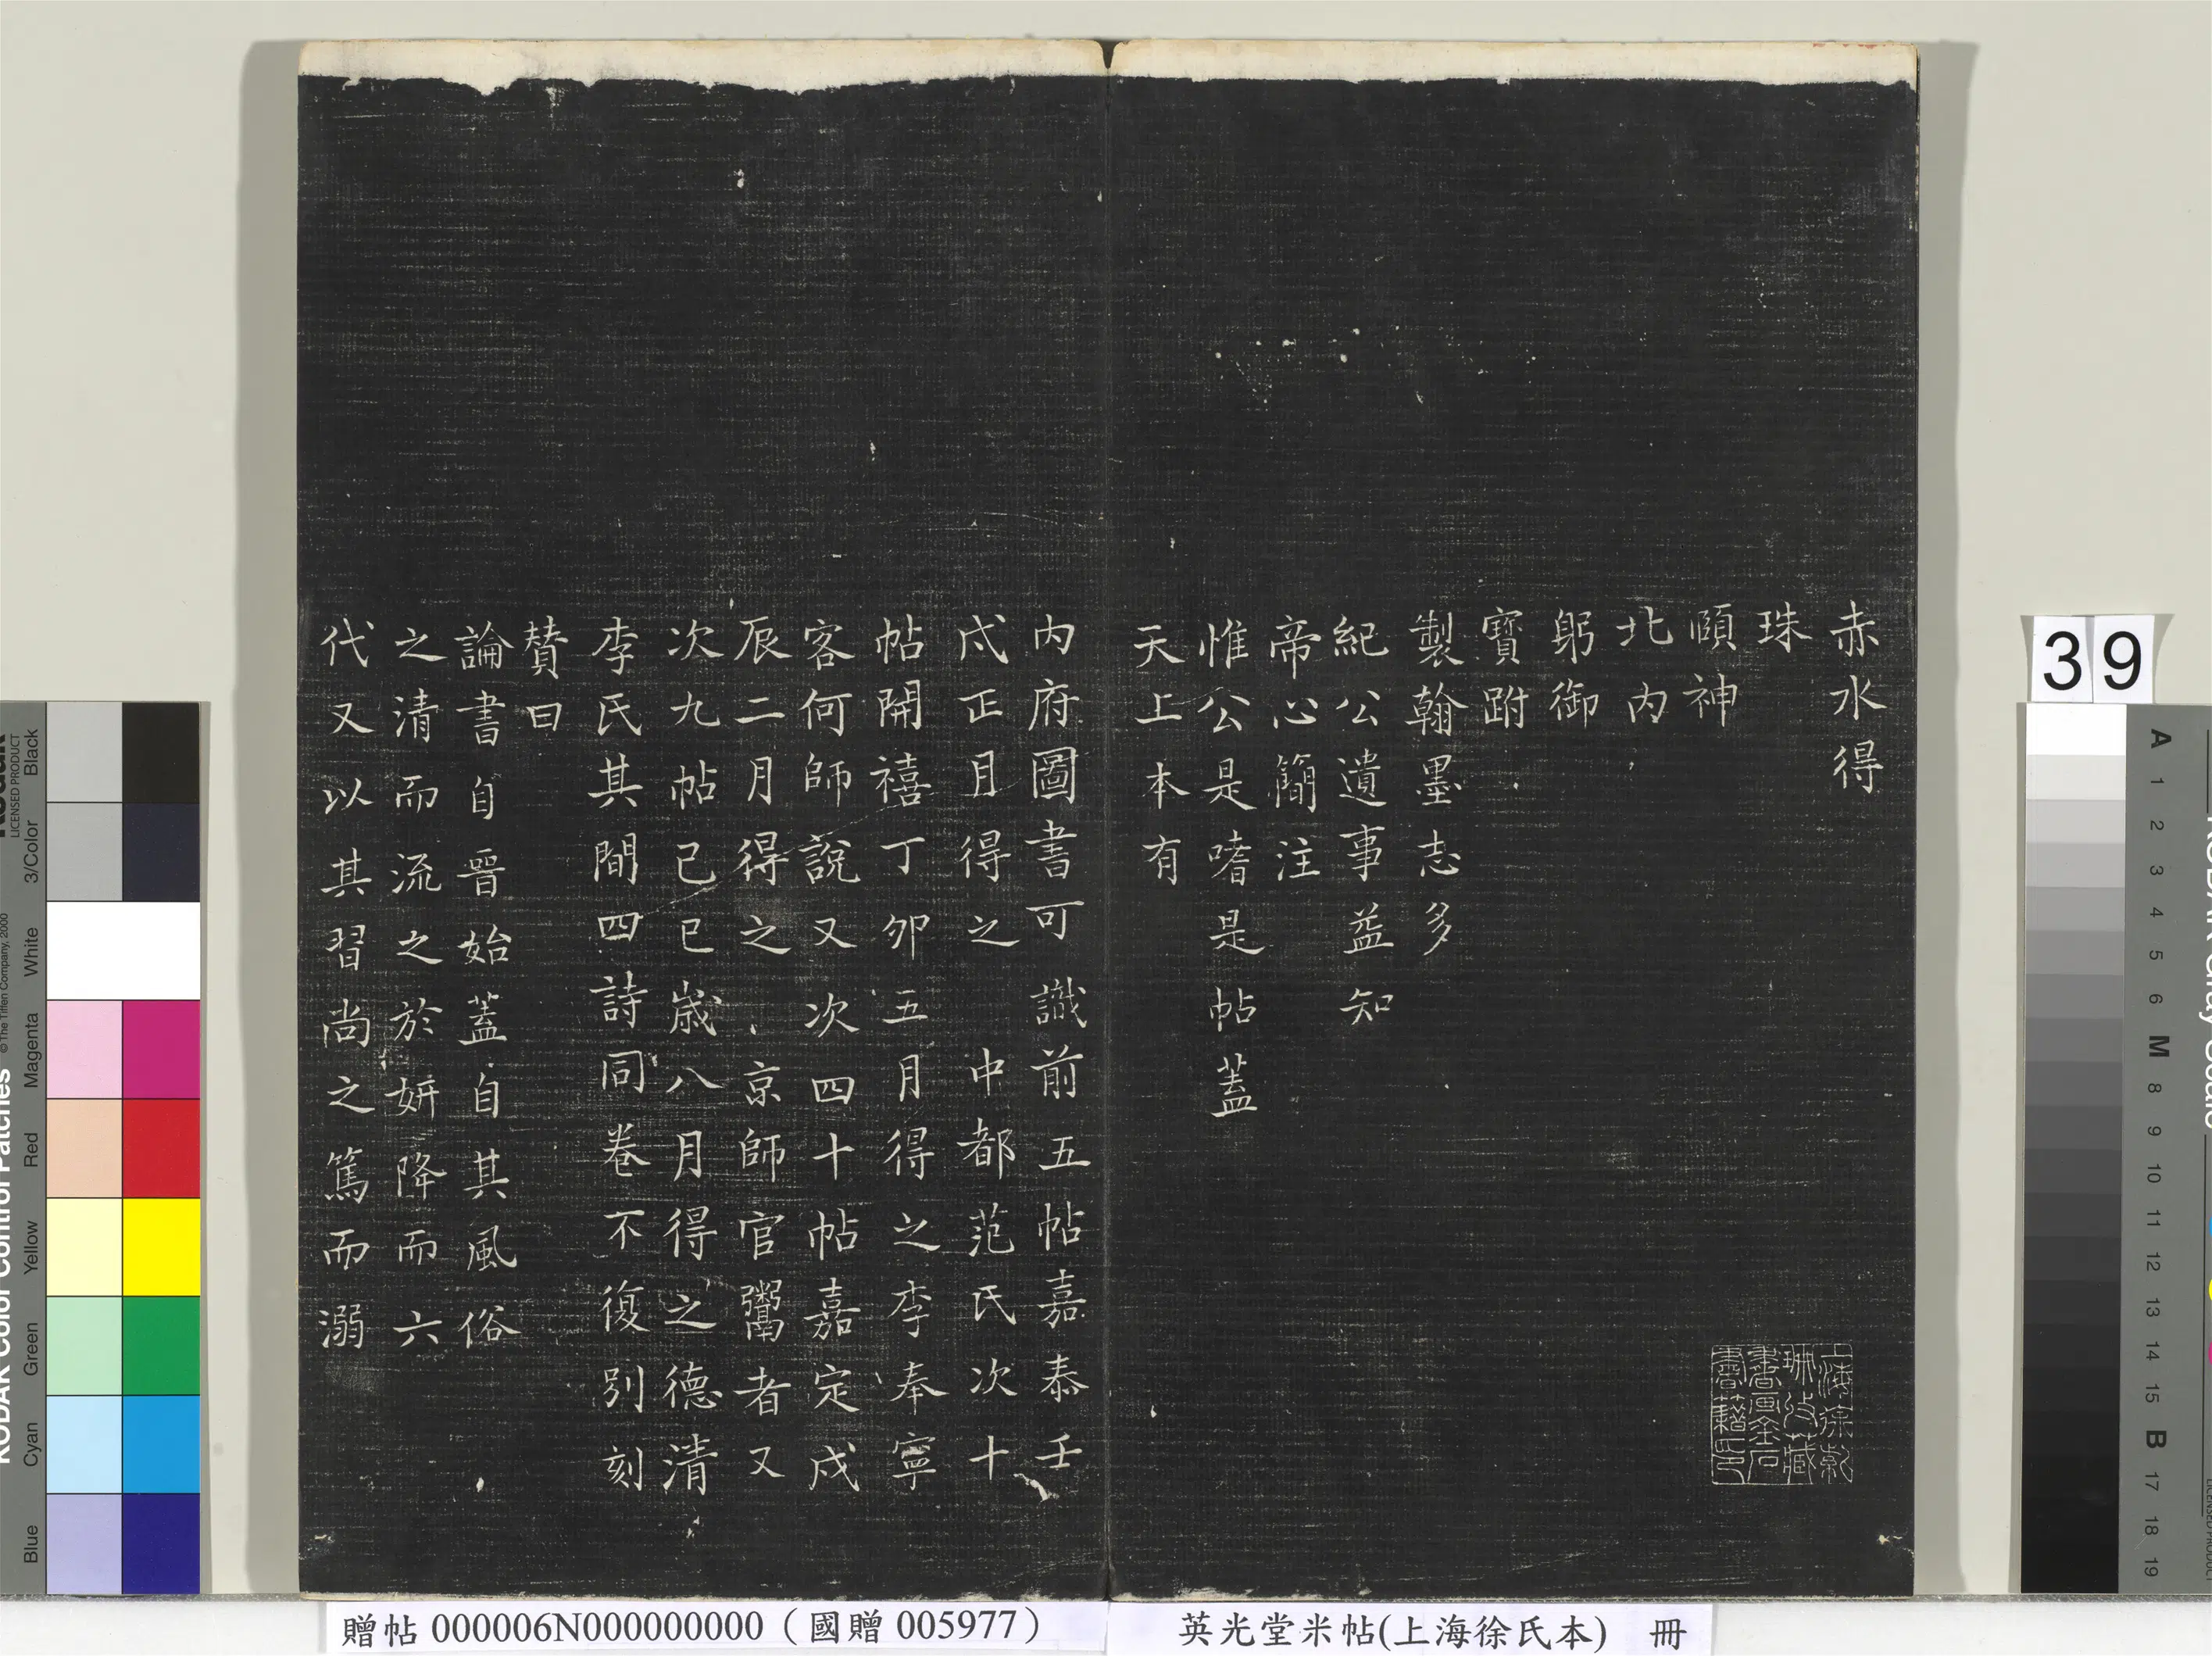 赤水得
珠
頤神
北内
躬御
寶跗
製翰墨志多
紀公遺事益知
帝心簡注
惟公是嗜是帖蓋
天上本有
内府圖書可識前五帖嘉泰壬
戌正月得之中都范氏次十
帖開禧丁卯五月得之李奉寧
客何師說又次四十帖嘉定戊
辰二月得之京師官鬻者又
次九帖己巳歲八月得之德清
李氏其間四詩同卷不復別刻
贊曰
論書自晉始蓋自其風俗
之清而流之於妍降而六
代又以其習尚之篤而溺
上海徐
書畫金石
書籍印
39
贈帖 000006N000000000（國贈 005977）
英光堂米帖(上海徐氏本) 冊
KODAK Color Control Patches
LICENSED PRODUCT
© The Tiffen Company, 2000
Blue
Cyan
Green
Yellow
Red
Magenta
White
3/Color
Black
A
1
2
3
4
5
6
M
8
9
10
11
12
13
14
15
B
17
18
19